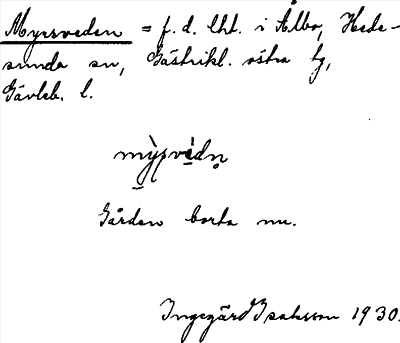 Myrsveden = f. d. lht. i Ålbo, Hede-
sunda sn, Gästrikl. östra tg,
Gävleb. l.
Gården borta nu.
Ingegärd Isaksson 1930.